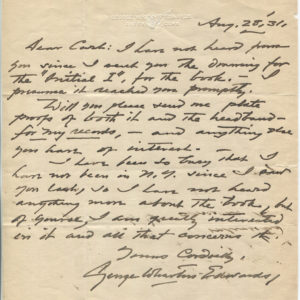 Aug. 28' 31.
Dear Cash: I have not heard from
you since I sent you the drawing for
the "Initial I", for the book. — I
presume it reached you promptly.
Will you please send me plate
proofs of both it and the headband —
for my records, — and anything else
you have of interest. —
— I have been so busy that I
have not been in N.Y. since I saw
you last, so I have not heard
anything more about the book, but
of course, I am greatly interested
in it and all that concerns it.
Yours Cordially,
George Wharton Edwards